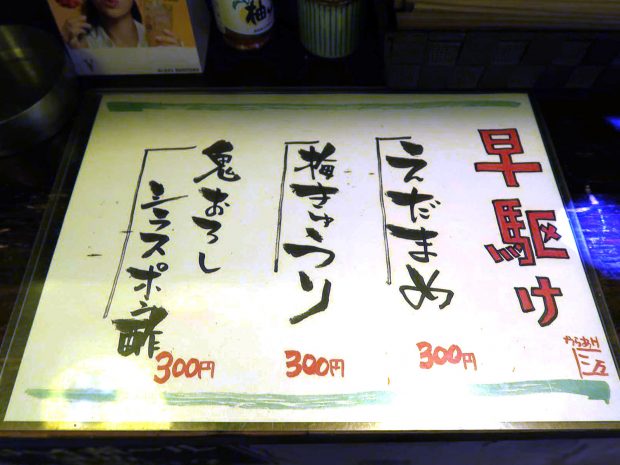 早駆け
えだまめ
300円
梅きゅうり
300円
鬼おろし
シラスポン酢
300円